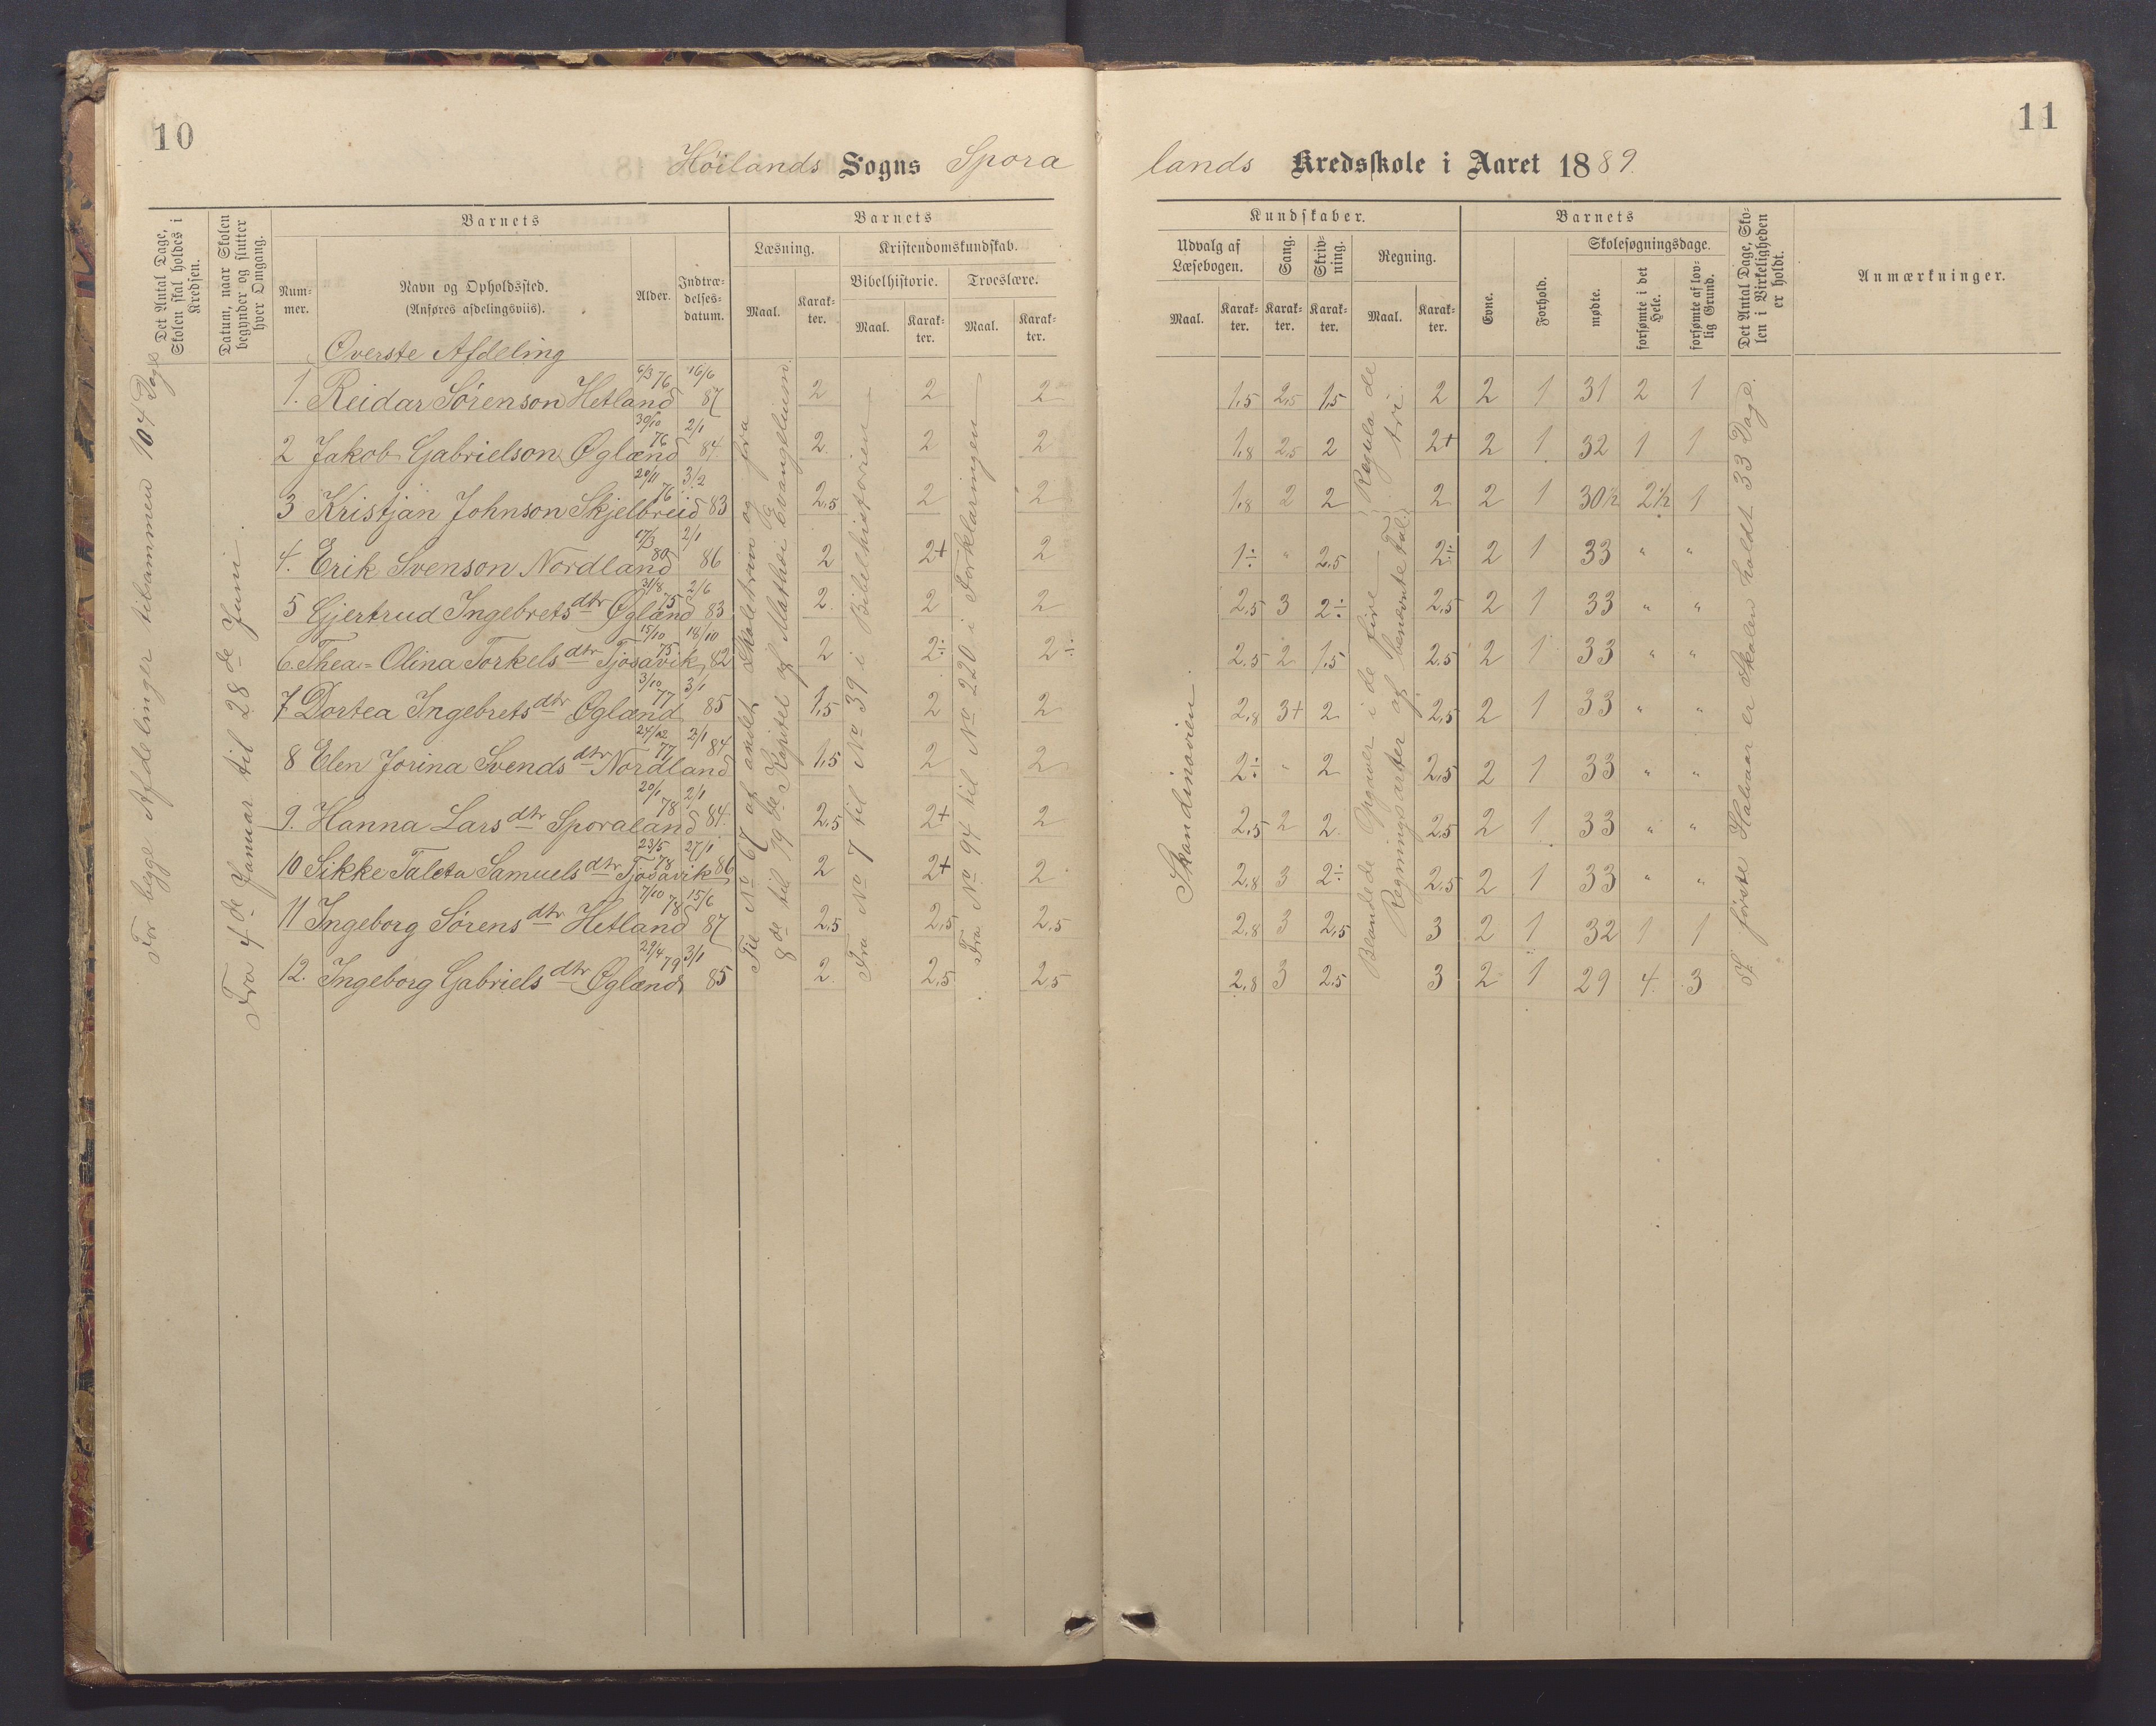 10
Høilands Sogns Spora
Det Antal Dage, Skolen skal holdes i Kredsen.
Datum, naar Skolen begynder og slutter hver Omgang.
Barnets
Nummer.
Navn og Opholdssted.
(Anføres afdelingsviis).
Alder.
Indtrædelsesdatum.
Barnets
Læsning.
Maal.
Karakter.
Kristendomskundskab.
Bibelhistorie.
Maal.
Karakter.
Troeslære.
Maal.
Karakter.
For begge Afdelinger tilsammen 104 Dage
Fra 4de Januar til 28de Juni.
Øverste Afdeling
1. Reidar Sørenson Hetland 6/3 76 16/6 87 2 2 2
2 Jakob Gabrielson Øgland 30/10 76 2/1 84. 2 2 2
3 Kristjan Johnson Skjelbreid 20/11 76 3/2 83 2,5 2 2
4. Erik Svenson Nordland 17/3 80 2/1 86 2 2+ 2
5 Gjertrud Ingebretsdtr Øgland 31/8 75 2/6 83 2 2 2
6. Thea=Olina Torkelsdtr Tjosavik 15/10 75. 18/10 82 2 2÷ 2÷
7 Dortea Ingebretsdtr Øgland 3/10 77 3/1 85 1,5 2 2
8 Elen Jorina Svendsdtr Nordland 24/12 77 2/1 84 1,5 2 2
9. Hanna Larsdtr Sporaland 20/1 78 2/1 84. 2,5 2+ 2
10 Sikke Taleta Samuelsdtr Tjosavik 23/5 78 27/1 86 2 2+ 2
11 Ingeborg Sørensdtr Hetland 7/10 78 15/6 87 2,5 2,5 2,5
12. Ingeborg Gabrielsdtr Øgland 29/4 79 3/1 85 2 2,5 2,5
Til No 67 af andet Skoletrin og fra
8de til 19de Kapitel af Mathæi Evangelium
Fra No 7 til No 39 i Bibelhistorien
Fra No 94 til No 220 i Forklaringen
11
lands Kredsskole i Aaret 1889.
Kundskaber.
Udvalg af Læsebogen.
Maal.
Karakter.
Sang.
Karakter.
Skrivning.
Karakter.
Regning.
Maal.
Karakter.
Barnets
Evne.
Forhold.
Skolesøgningsdage.
mødte.
forsømte i det Hele.
forsømte af lovlig Grund.
Det Antal Dage, Skolen i Virkeligheden er holdt.
Anmærkninger.
1,5 2,5 1,5 2 2 1 31 2 1
1,8 2,5 2 2+ 2 1 32 1 1
1,8 2 2 2 2 1 30½ 2½ 1
1÷ " 2,5 2÷ 2 1 33 " "
2,5 3 2÷ 2,5 2 1 33 " "
2,5 2 1,5 2,5 2 1 33 " "
2,8 3+ 2 2,5 2 1 33 " "
2÷ " 2 2,5 2 1 33 " "
2,5 2 2 2,5 2 1 33 " "
2,8 3 2÷ 2,5 2 1 33 " "
2,8 3 2,5 3 2 1 32 1 1
2,8 3 2,5 3 2 1 29 4 3
Skandinavien.
Blandede Opgaver i de fire Regningsarter af benævnte Tal. Regula de tri.
I første Halvaar er Skolen holdt 33 Dage.